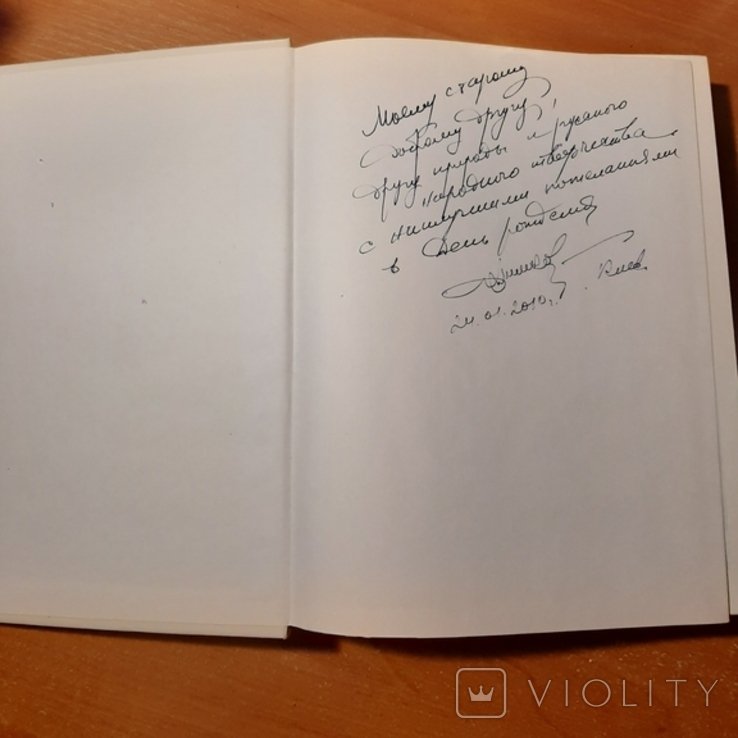 Моему старому
доброму другу,
другу природы и русского
народного творчества
с наилучшими пожеланиями
в день рождения
24.01.2010г. Киев
VIOLITY